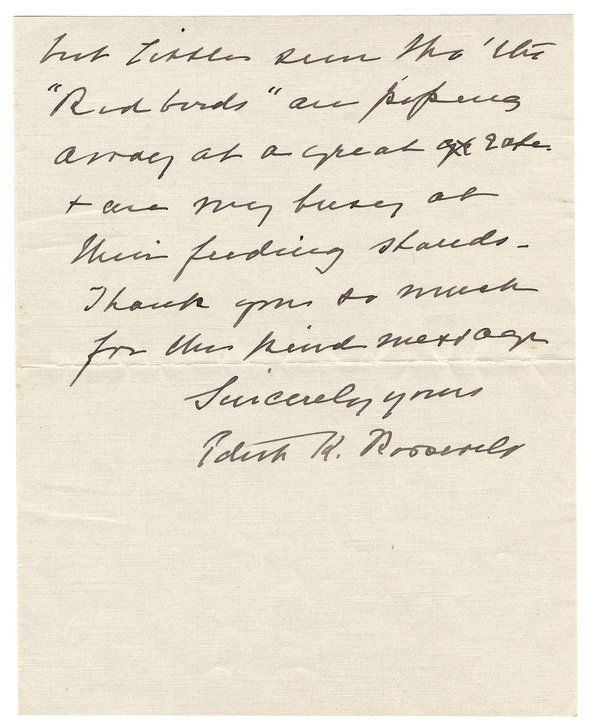 but little sun tho' the
"Redbirds" are piping
away at a great rate.
+ are very busy at
their feeding stands -
Thank you so much
for the kind message
Sincerely yours
Edith K. Roosevelt